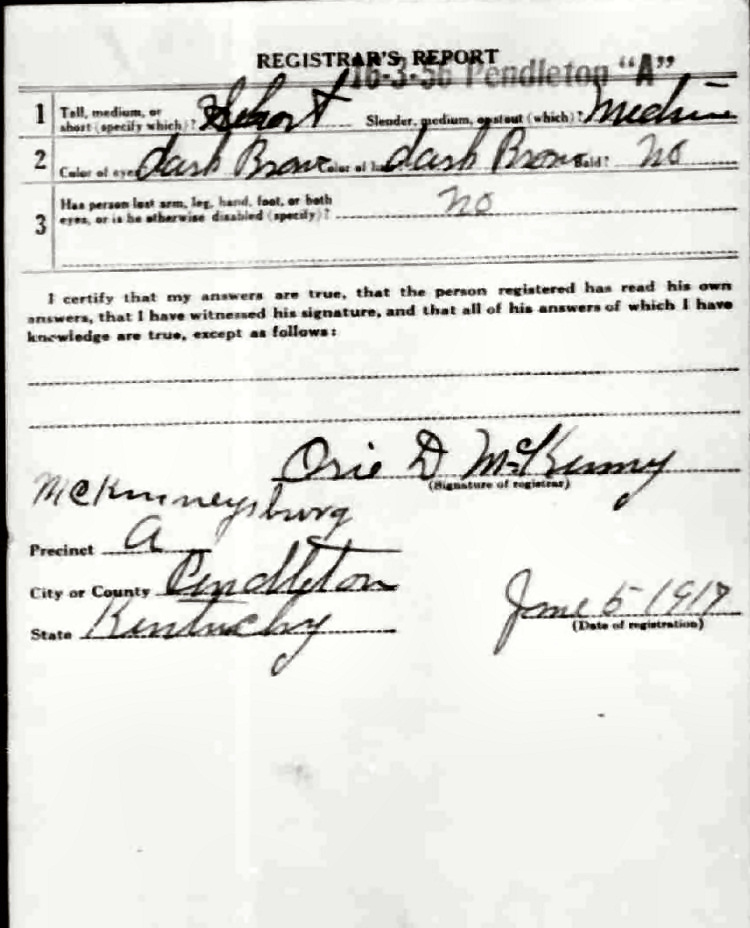 REGISTRAR'S REPORT
16-3-56 Pendleton "A"
1 Tall, medium, or short (specify which)? Short Slender, medium, or stout (which)? Medium
2 Color of eyes dark Brown Color of hair dark Brown Bald? no
3 Has person lost arm, leg, hand, foot, or both
eyes, or is he otherwise disabled (specify)? no
I certify that my answers are true, that the person registered has read his own
answers, that I have witnessed his signature, and that all of his answers of which I have
knowledge are true, except as follows:
Orie D McKinney
(Signature of registrar)
McKinneysburg
Precinct A
City or County Pendleton
State Kentucky
June 5-1917
(Date of registration)